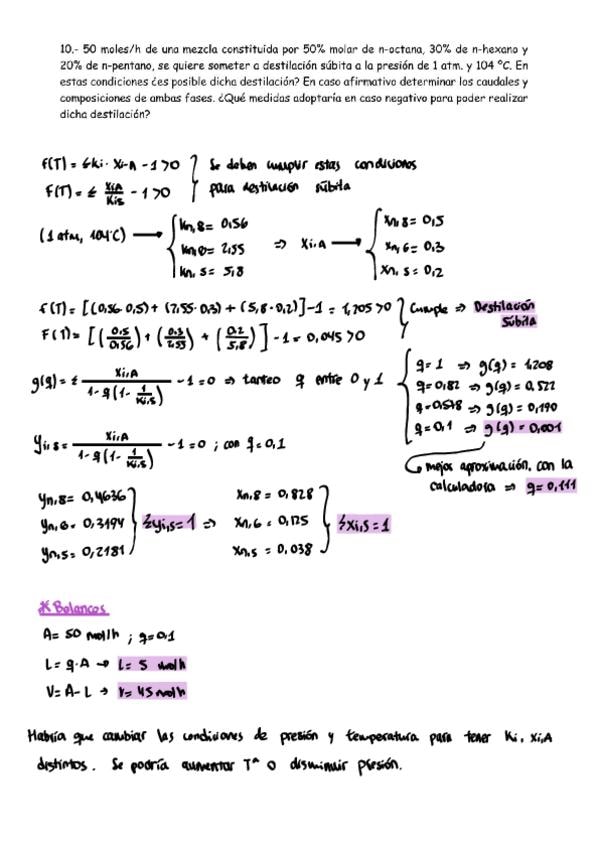 10.- 50 moles/h de una mezcla constituida por 50% molar de n-octano, 30% de n-hexano y
20% de n-pentano, se quiere someter a destilación súbita a la presión de 1 atm. y 104 ºC. En
estas condiciones ¿es posible dicha destilación? En caso afirmativo determinar los caudales y
composiciones de ambas fases. ¿Qué medidas adoptaría en caso negativo para poder realizar
dicha destilación?
f(T) = Σki · xi·A - 1 > 0 } Se deben cumplir estas condiciones
F(T) = Σ xiA/Kis - 1 > 0 } para destilación súbita
(1 atm, 104ºC) → { kn,8 = 0,56
kn,6 = 2,55
kn,5 = 5,8
⇒ xi,A → { xn,8 = 0,5
xn,6 = 0,3
xn,5 = 0,2
f(T) = [(0,56·0,5) + (2,55·0,3) + (5,8·0,2)] - 1 = 1,205 > 0 } Cumple ⇒ Destilación
F(T) = [(0,5/0,56) + (0,3/2,55) + (0,2/5,8)] - 1 = 0,045 > 0 } Súbita
g(q) = Σ xi,A / 1-q(1- 1/Ki,s) - 1 = 0 ⇒ tanteo q entre 0 y 1
{ q = 1 ⇒ g(q) = 1,208
q = 0,82 ⇒ g(q) = 0,522
q = 0,518 ⇒ g(q) = 0,190
q = 0,1 ⇒ g(q) = 0,001
mejor aproximación, con la
calculadora ⇒ q = 0,111
yi,s = xi,A / 1-q(1- 1/Ki,s) - 1 = 0 ; con q = 0,1
yn,8 = 0,4636
yn,6 = 0,3194
yn,5 = 0,2181
} Σyi,s = 1 ⇒
xn,8 = 0,828
xn,6 = 0,125
xn,5 = 0,038
} Σxi,s = 1
* Balances
A = 50 mol/h ; q = 0,1
L = q·A → L = 5 mol/h
V = A - L → V = 45 mol/h
Habría que cambiar las condiciones de presión y temperatura para tener Ki, xi,A
distintos. Se podría aumentar Tª o disminuir presión.